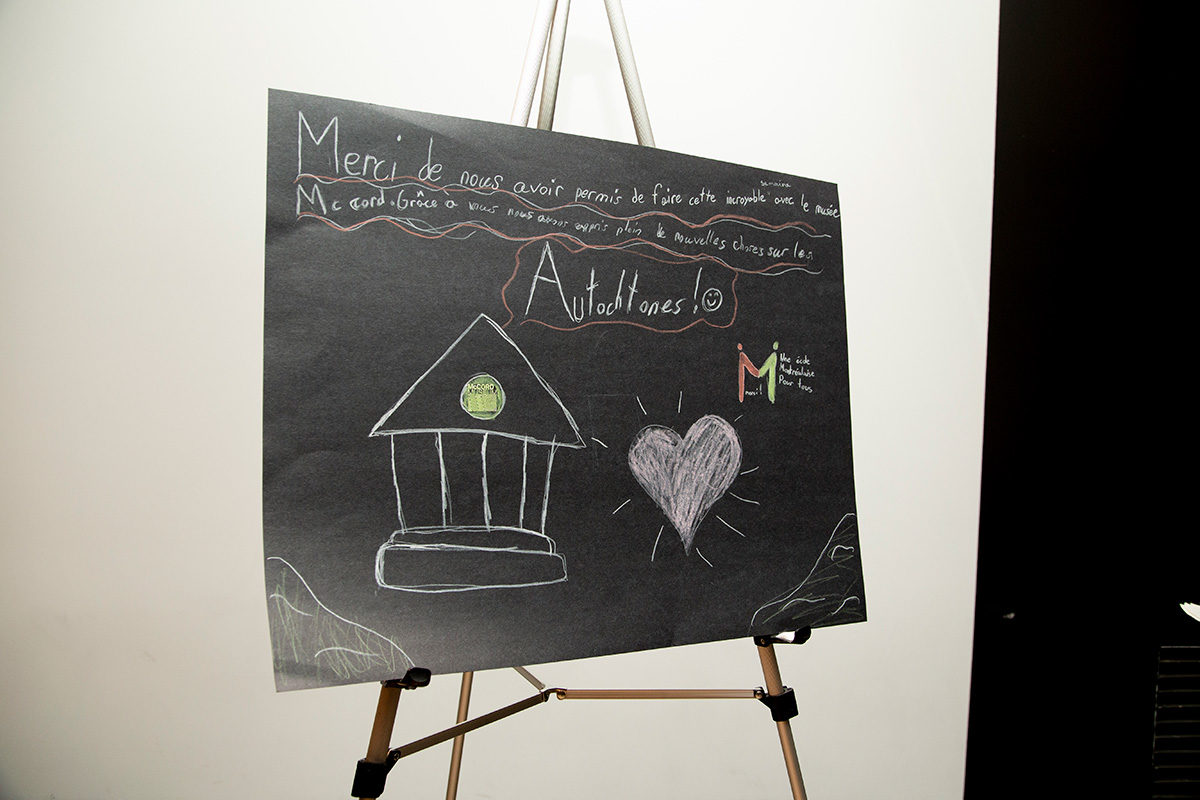 Merci de nous avoir permis de faire cette incroyable semaine avec le musée
Mc cord. Grâce a vous nous avons appris plein de nouvelles choses sur les
Autochtones !
McCORD
Une école
Montréalaise
Pour tous
merci !